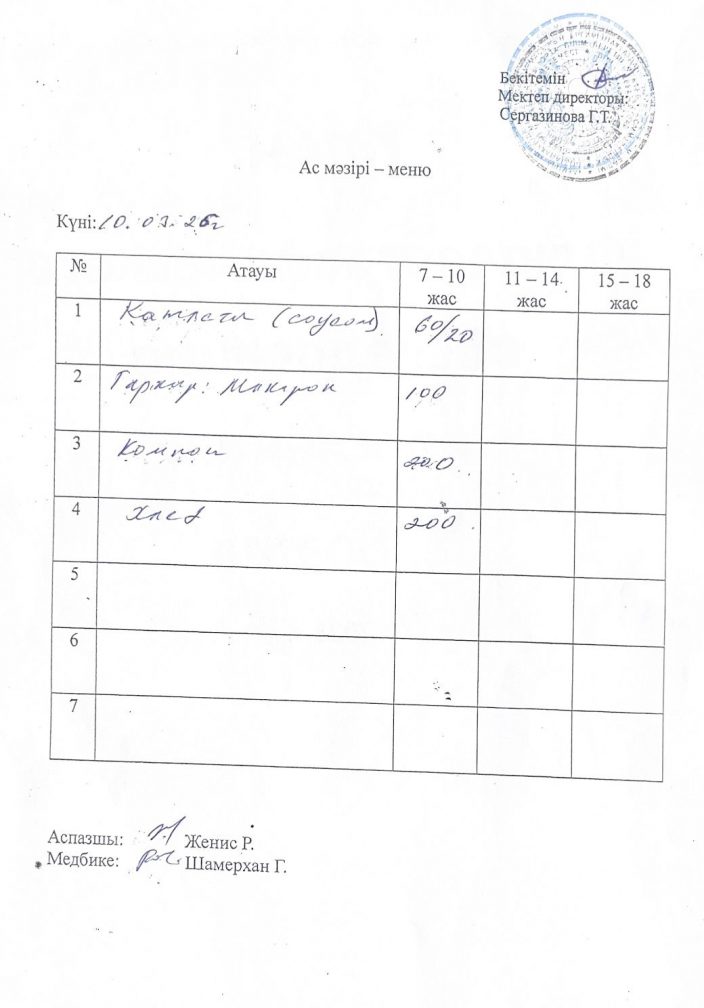 Бекітемін
Мектеп директоры:
Сергазинова Г.Т.
Ас мәзірі – меню
Күні: 10. 03. 26г
№ Атауы 7 – 10 жас 11 – 14 жас 15 – 18 жас
1 Катлеты (соусом) 60/20
2 Гарнир: Макарон 100
3 Компот 200
4 Хлеб 200
5
6
7
Аспазшы: Женис Р.
Медбике: Шамерхан Г.